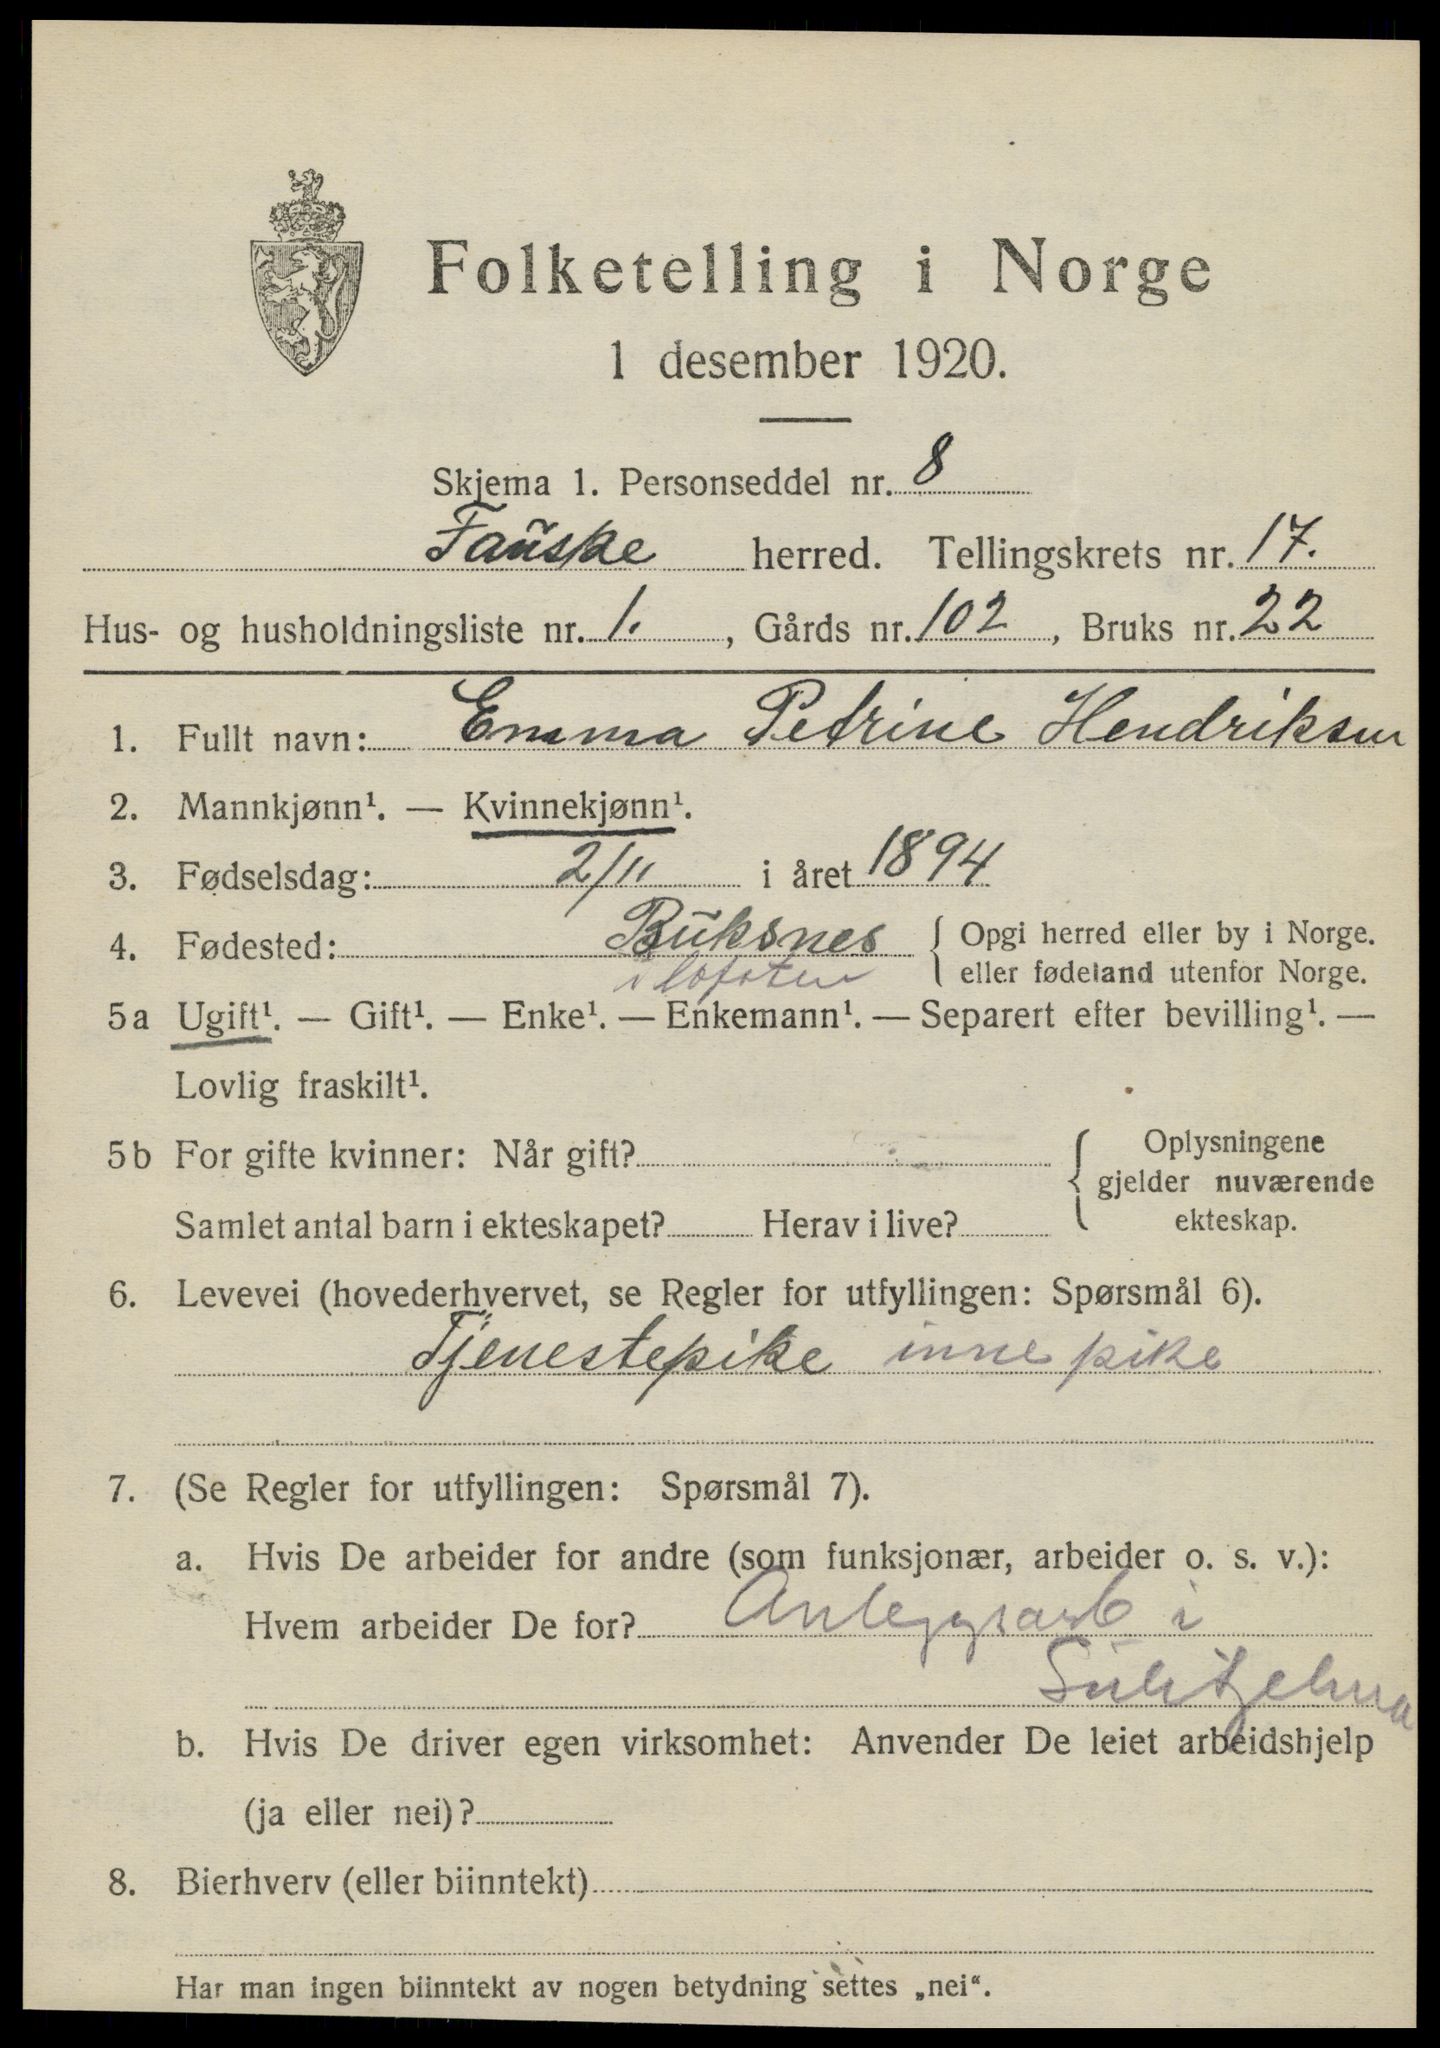 Folketelling i Norge
1 desember 1920.
Skjema 1. Personseddel nr. 8
Fauske herred. Tellingskrets nr. 17.
Hus- og husholdningsliste nr. 1. , Gårds nr. 102 , Bruks nr. 22
1. Fullt navn: Emma Petrine Hendriksen
2. Mannkjønn¹. — Kvinnekjønn¹.
3. Fødselsdag: 2/11 i året 1894
4. Fødested: Buksnes { Opgi herred eller by i Norge.
i Lofoten eller fødeland utenfor Norge.
5a Ugift¹. — Gift¹. — Enke¹. — Enkemann¹. — Separert efter bevilling¹. —
Lovlig fraskilt¹.
5b For gifte kvinner: Når gift? { Oplysningene
gjelder nuværende
Samlet antal barn i ekteskapet? Herav i live? ekteskap.
6. Levevei (hovederhvervet, se Regler for utfyllingen: Spørsmål 6).
Tjenestepike innepike
7. (Se Regler for utfyllingen: Spørsmål 7).
a. Hvis De arbeider for andre (som funksjonær, arbeider o. s. v.):
Hvem arbeider De for? Anleggsarb i
Sulitjelma
b. Hvis De driver egen virksomhet: Anvender De leiet arbeidshjelp
(ja eller nei)?
8. Bierhverv (eller biinntekt)
Har man ingen biinntekt av nogen betydning settes „nei“.